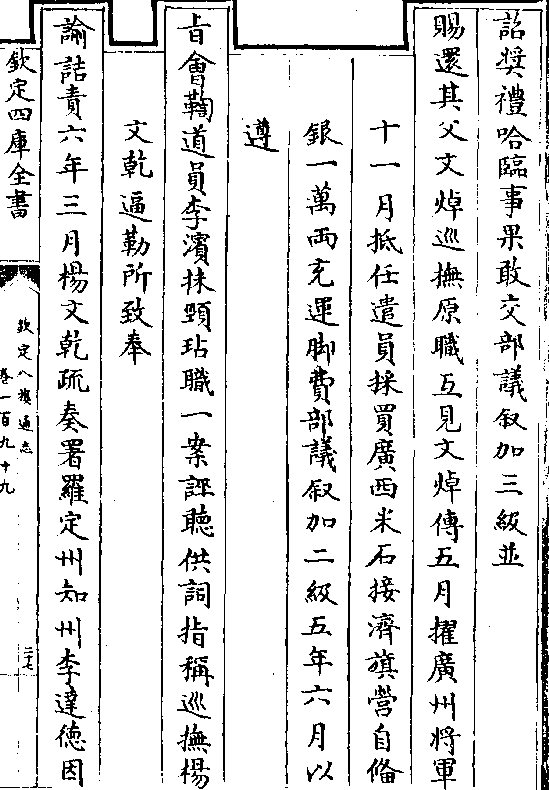 詔奬禮哈臨事果敢交部議叙加三級並
賜還其父文焯巡撫原職互見文焯傳五月擢廣州將軍
十一月抵任遣員採買廣西米石接濟旗營自備
銀一萬兩充運脚費部議叙加二級五年六月以
遵
旨會鞫道員李濱抹頸玷職一案誣聽供詞指稱巡撫楊
文乾逼勒所致奉
諭詰責六年三月楊文乾疏奏署羅定州知州李達德因
欽定四庫全書
欽定八旗通志
卷一百九十九